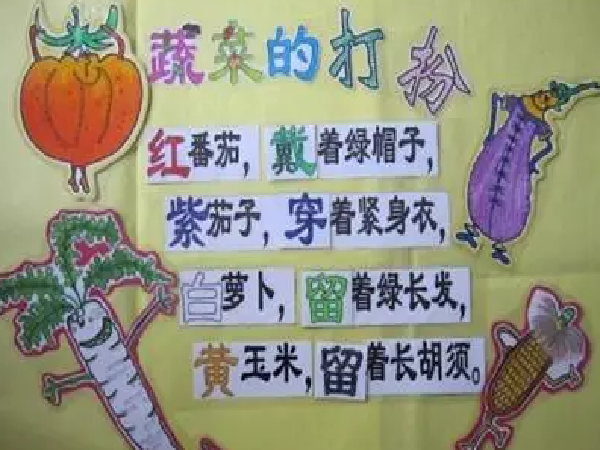 蔬菜的打扮
红番茄，戴着绿帽子，
紫茄子，穿着紧身衣，
白萝卜，留着绿长发，
黄玉米，留着长胡须。